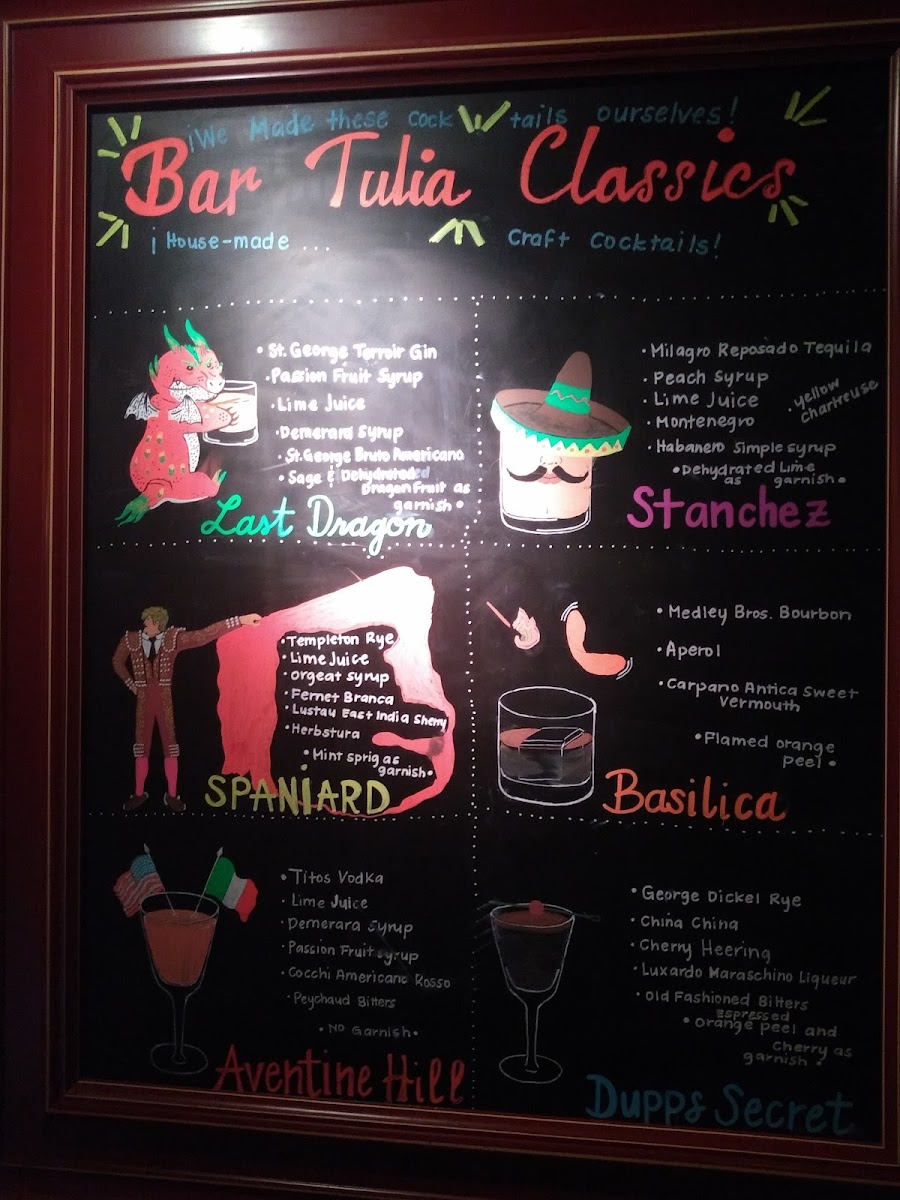 ¡We Made these cock tails ourselves!
Bar Tulia Classics
¡House-made ... Craft Cocktails!
• St. George Terroir Gin
• Passion Fruit Syrup
• Lime Juice
• Demerara Syrup
• St. George Bruto Americano
• Sage & Dehydrated
Dragon Fruit as
garnish •
Last Dragon
• Milagro Reposado Tequila
• Peach Syrup
• Lime Juice
• yellow
chartreuse
• Montenegro
• Habanero Simple syrup
• Dehydrated Lime
as garnish •
Stanchez
• Templeton Rye
• Lime Juice
• orgeat syrup
• Fernet Branca
• Lustau East India Sherry
• Herbstura
• Mint sprig as
garnish •
SPANiARD
• Medley Bros. Bourbon
• Aperol
• Carpano Antica Sweet
Vermouth
• Flamed orange
Peel •
Basilica
• Titos Vodka
• Lime Juice
• Demerara Syrup
• Passion Fruit syrup
• Cocchi Americano Rosso
• Peychaud Bitters
• No Garnish •
Aventine Hill
• George Dickel Rye
• China China
• Cherry Heering
• Luxardo Maraschino Liqueur
• Old Fashioned Bitters
Espressed
• orange peel and
Cherry as
garnish •
Dupps Secret